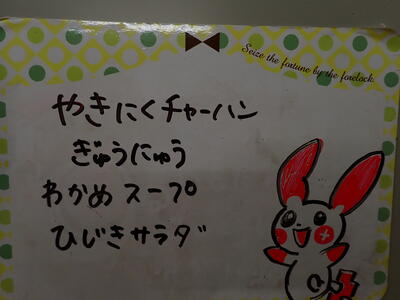 Seize the fortune by the forelock
やきにくチャーハン
ぎゅうにゅう
わかめスープ
ひじきサラダ